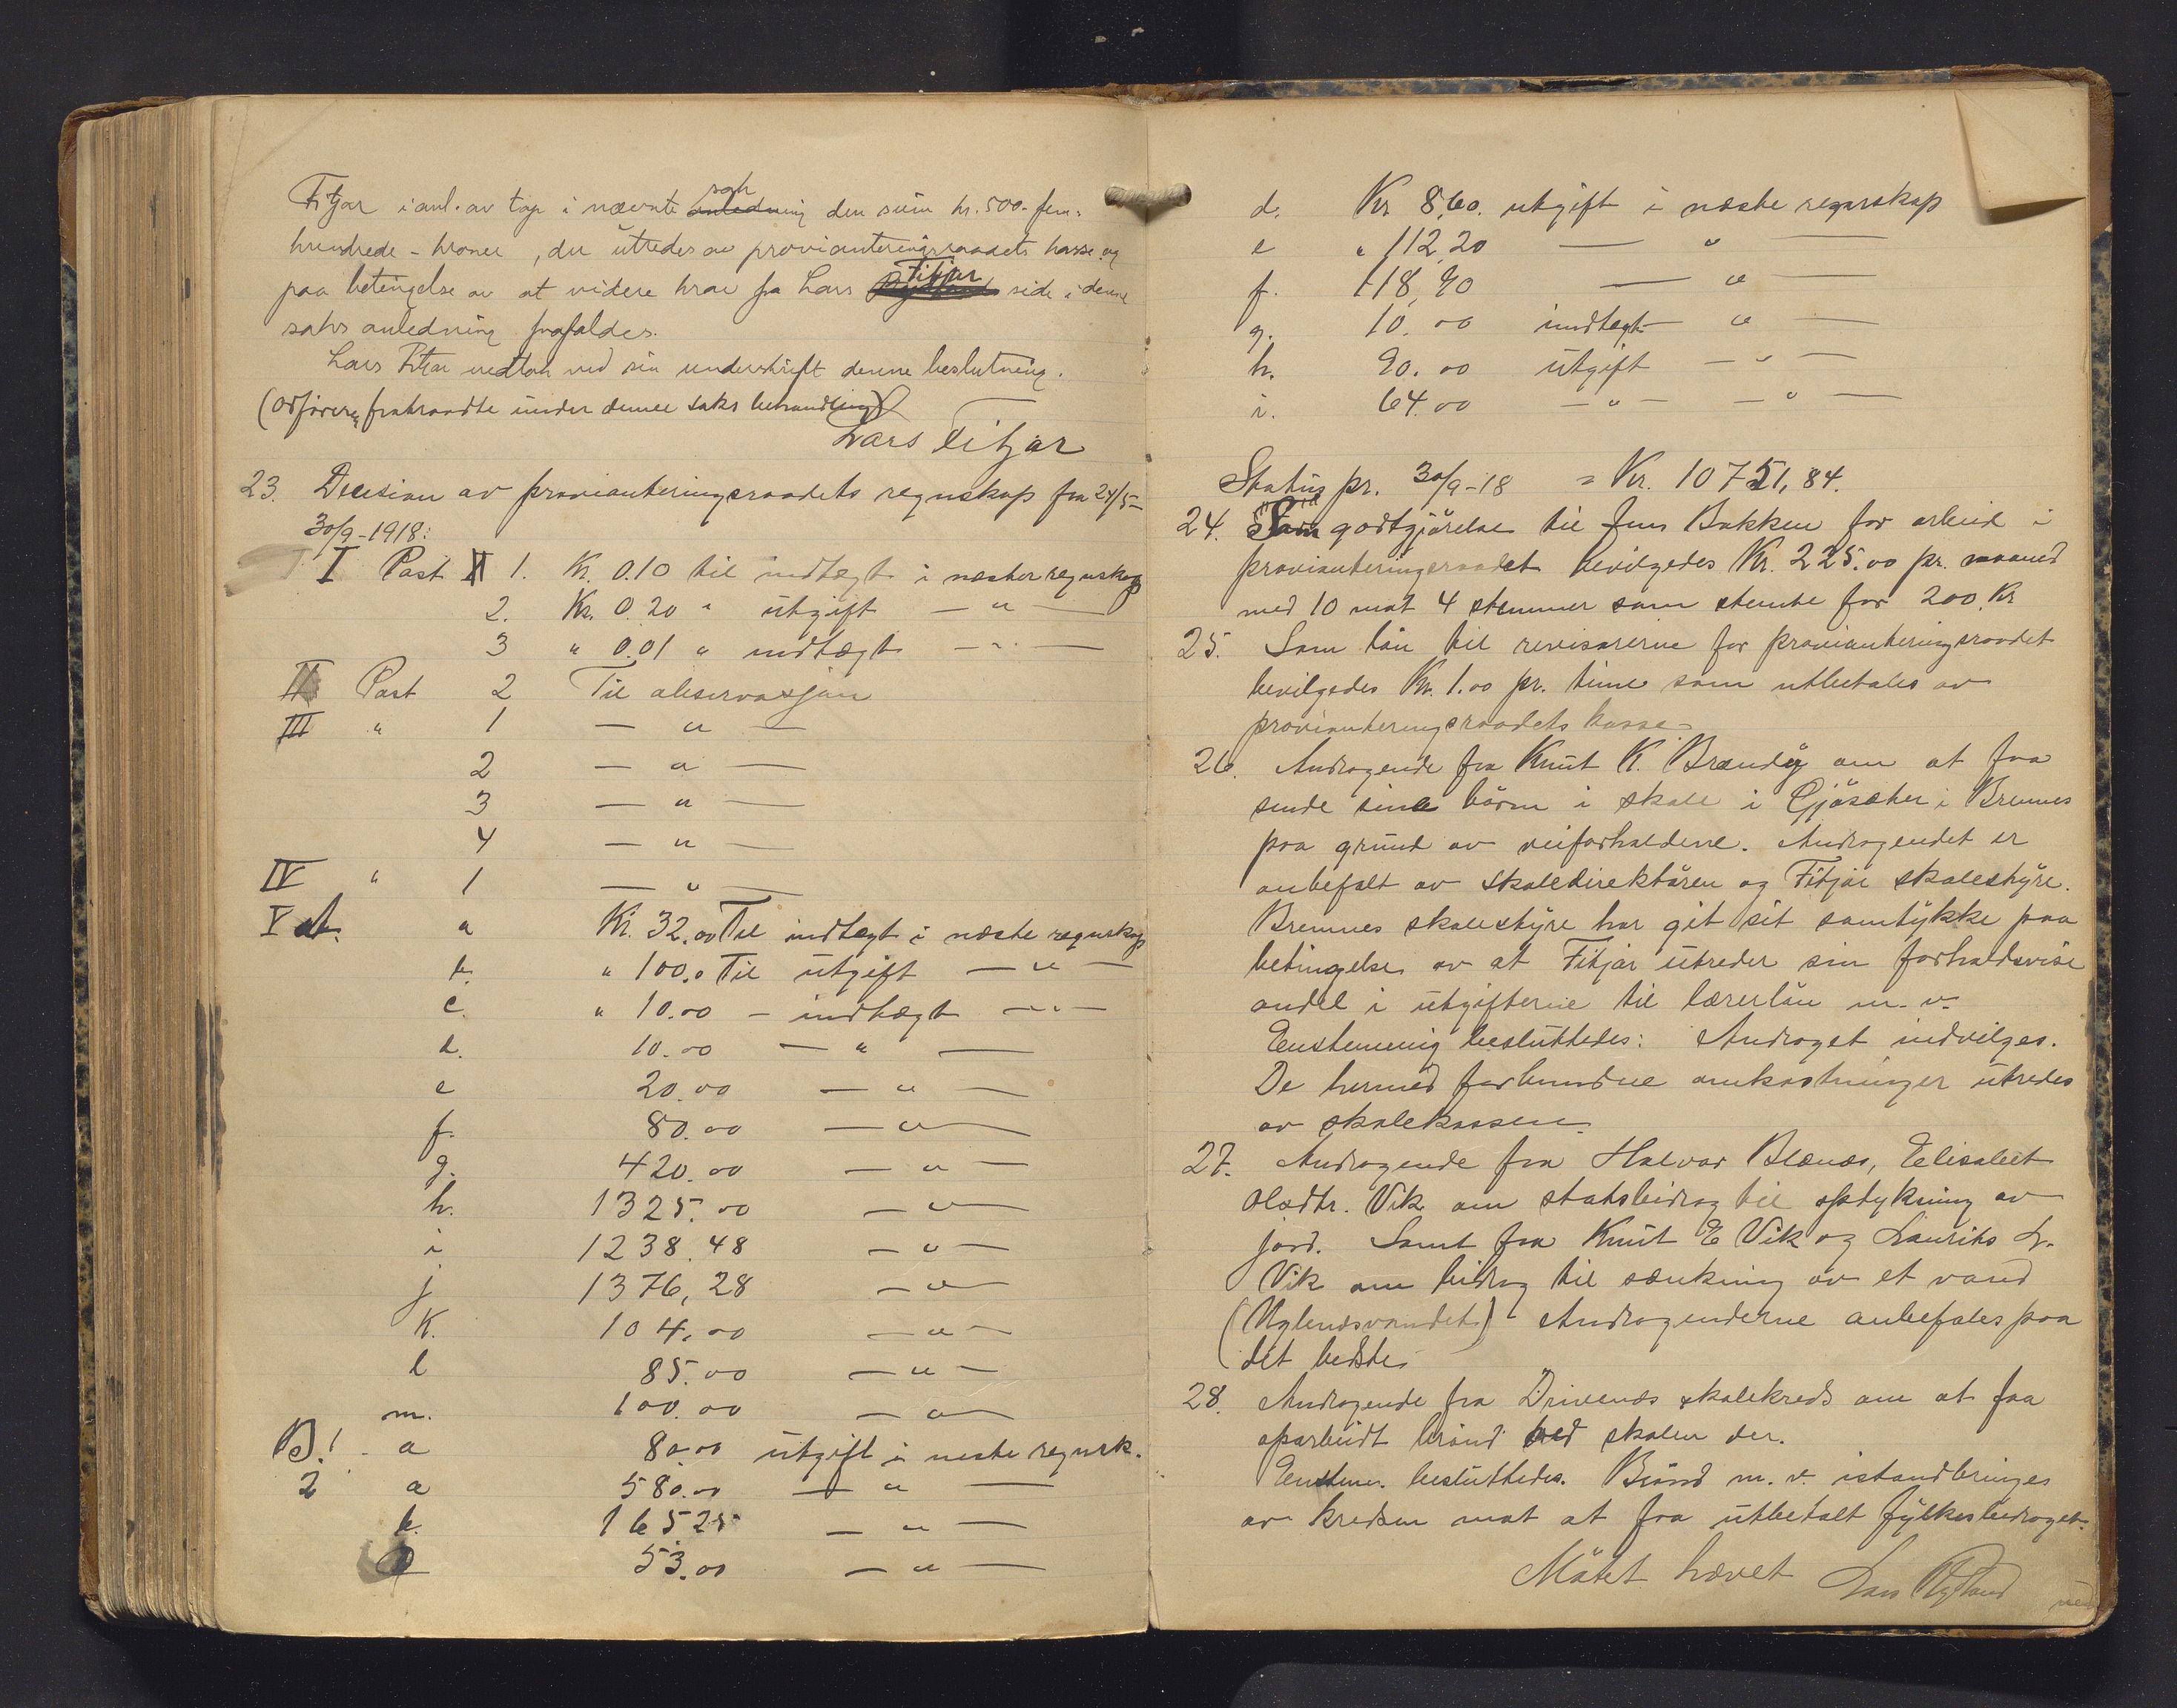 Fitjar i anl. av tap i nævnte sak den sum kr. 500. fem-
hundrede - kroner, der utredes av provianteringsraadets kasse og
paa betingelse av at videre krav fra Lars Fitjar side i denne
saks anledning frafaldes.
Lars Fitjar vedtok ved sin underskrift denne beslutning.
(Ordföreren fratraadte under denne saks behandling)
Lars Fitjar
23. Decision av provianteringsraadets regnskap fra 24/5-
30/9-1918:
I Post 1. Kr. 0.10 til indtægt i næste regnskap
2. Kr. 0.20 " utgift — " —
3 " 0.01 " indtægt — " —
II Post 2 Til observasjon
III " 1 — " —
2 — " —
3 — " —
4 — " —
IV " 1 — " —
V a Kr. 32.00 Til indtægt i næste regnskap
b. " 100.0 Til utgift — " —
c. " 10.00 - indtægt — " —
d. 10.00 — " —
e 20.00 — " —
f. 80.00 — " —
g. 420.00 — " —
h. 1325.00 — " —
i 1238.48 — " —
j 1376,28 — " —
k. 104.00 — " —
l 85.00 — " —
m. 100.00 — " —
B. 1. a 80.00 utgift i neste regnsk.
2 a 580.00 — " —
b. 16525 — " —
53.00 — " —
d. Kr 8,60. utgift i næste regnskap
e " 112,20 — " —
f. 118,90 — " —
g. 10.00 indtægt " —
h. 90.00 utgift — " —
i. 64.00 — " — — " —
Status pr. 30/9-18 = Kr. 10751,84.
24. Som godtgjörelse til Jens Bakken for arbeid i
provianteringsraadet bevilgedes Kr. 225.00 pr. maaned
med 10 mot 4 stemmer som stemte for 200 Kr
25. Som lön til revisorerne for provianteringsraadet
bevilgedes Kr. 1.00 pr. time som utbetales av
provianteringsraadets kasse.
26. Andragende fra Knut K. Brandöy om at faa
sende sine börn i skole i Gjösæter i Bremnes
paa grund av veiforholdene. Andragendet er
anbefalt av skoledirektören og Fitjar skolestyre.
Bremnes skolestyre har git sit samtykke paa
betingelse av at Fitjar utreder sin forholdsvise
andel i utgifterne til lærerlön m.v.
Enstemmig besluttedes: Androget indvilges.
De hermed forbundne omkostninger utredes
av skolekassen.
27. Andragende fra Halvor Blænes, Elisabet
Olsdtr. Vik om statsbidrag til opdyrkning av
jord. Samt fra Knut E Vik og Laurits L.
Vik om bidrag til sænkning av et vand
(Uglenesvandet) Andragenderne anbefales paa
det bedste.
28. Andragende fra Drivenes skolekreds om at faa
oparbeidt brönd ved skolen der.
Enstem. besluttedes. Brönd m.v. istandbringes
av kredsen mot at faa utbetalt fylkesbidraget.
Mötet hævet Lars Rydland